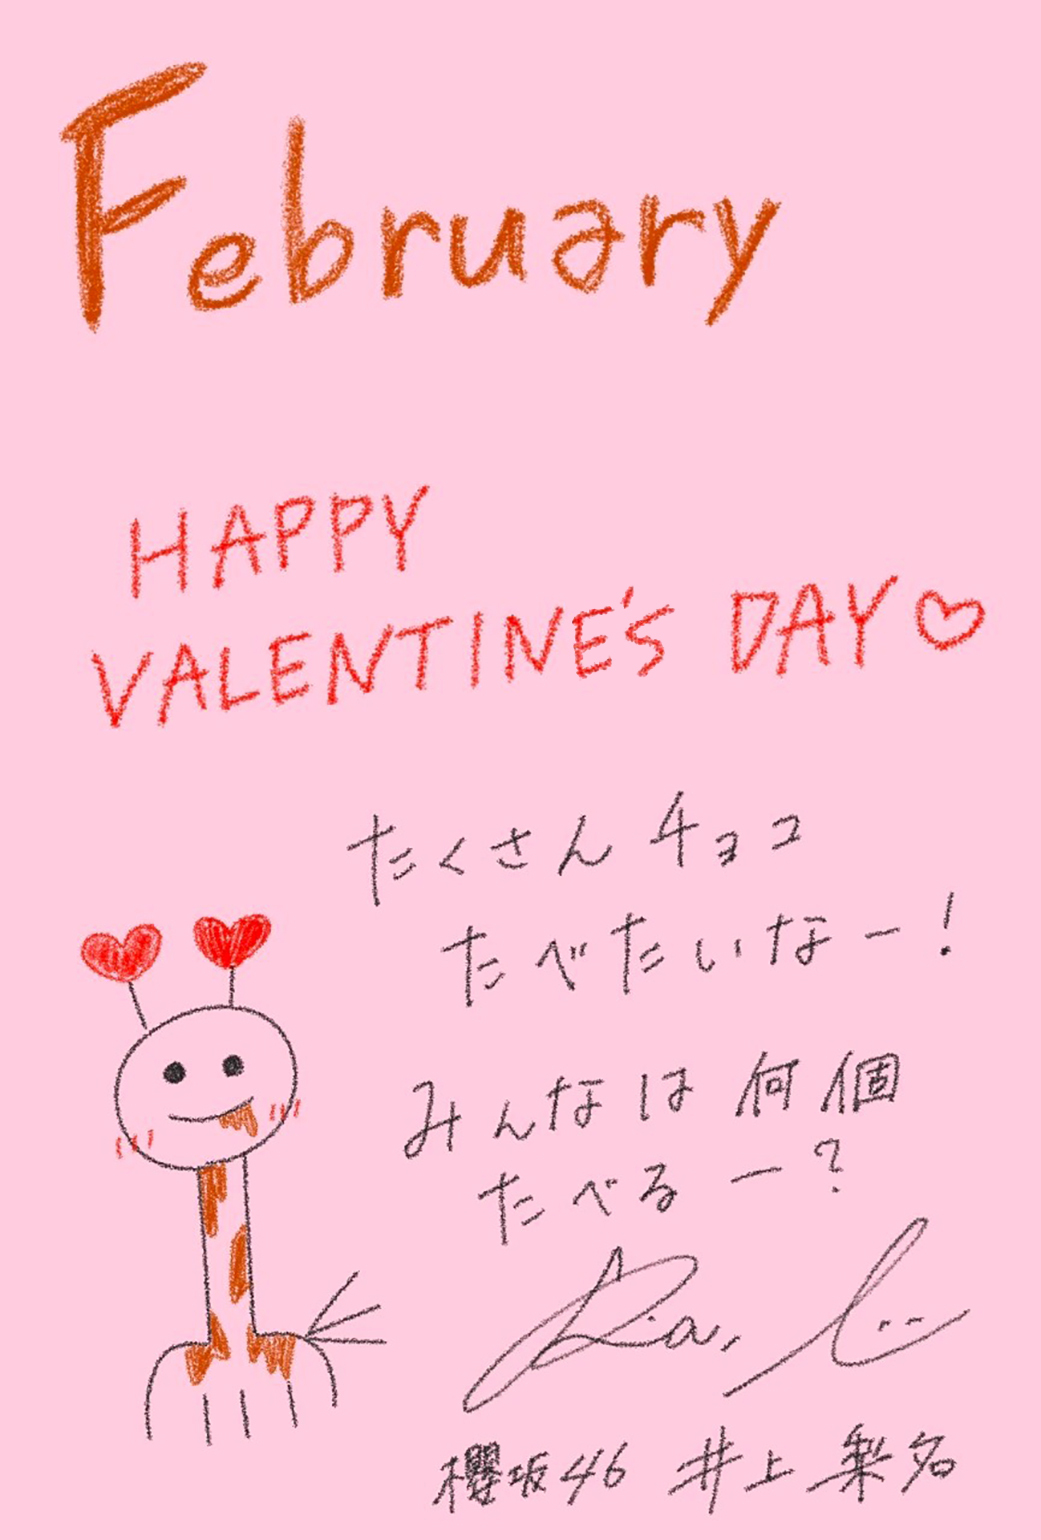 February
HAPPY
VALENTINE'S DAY♡
たくさんチョコ
たべたいなー!
みんなは何個
たべるー?
櫻坂46 井上梨名